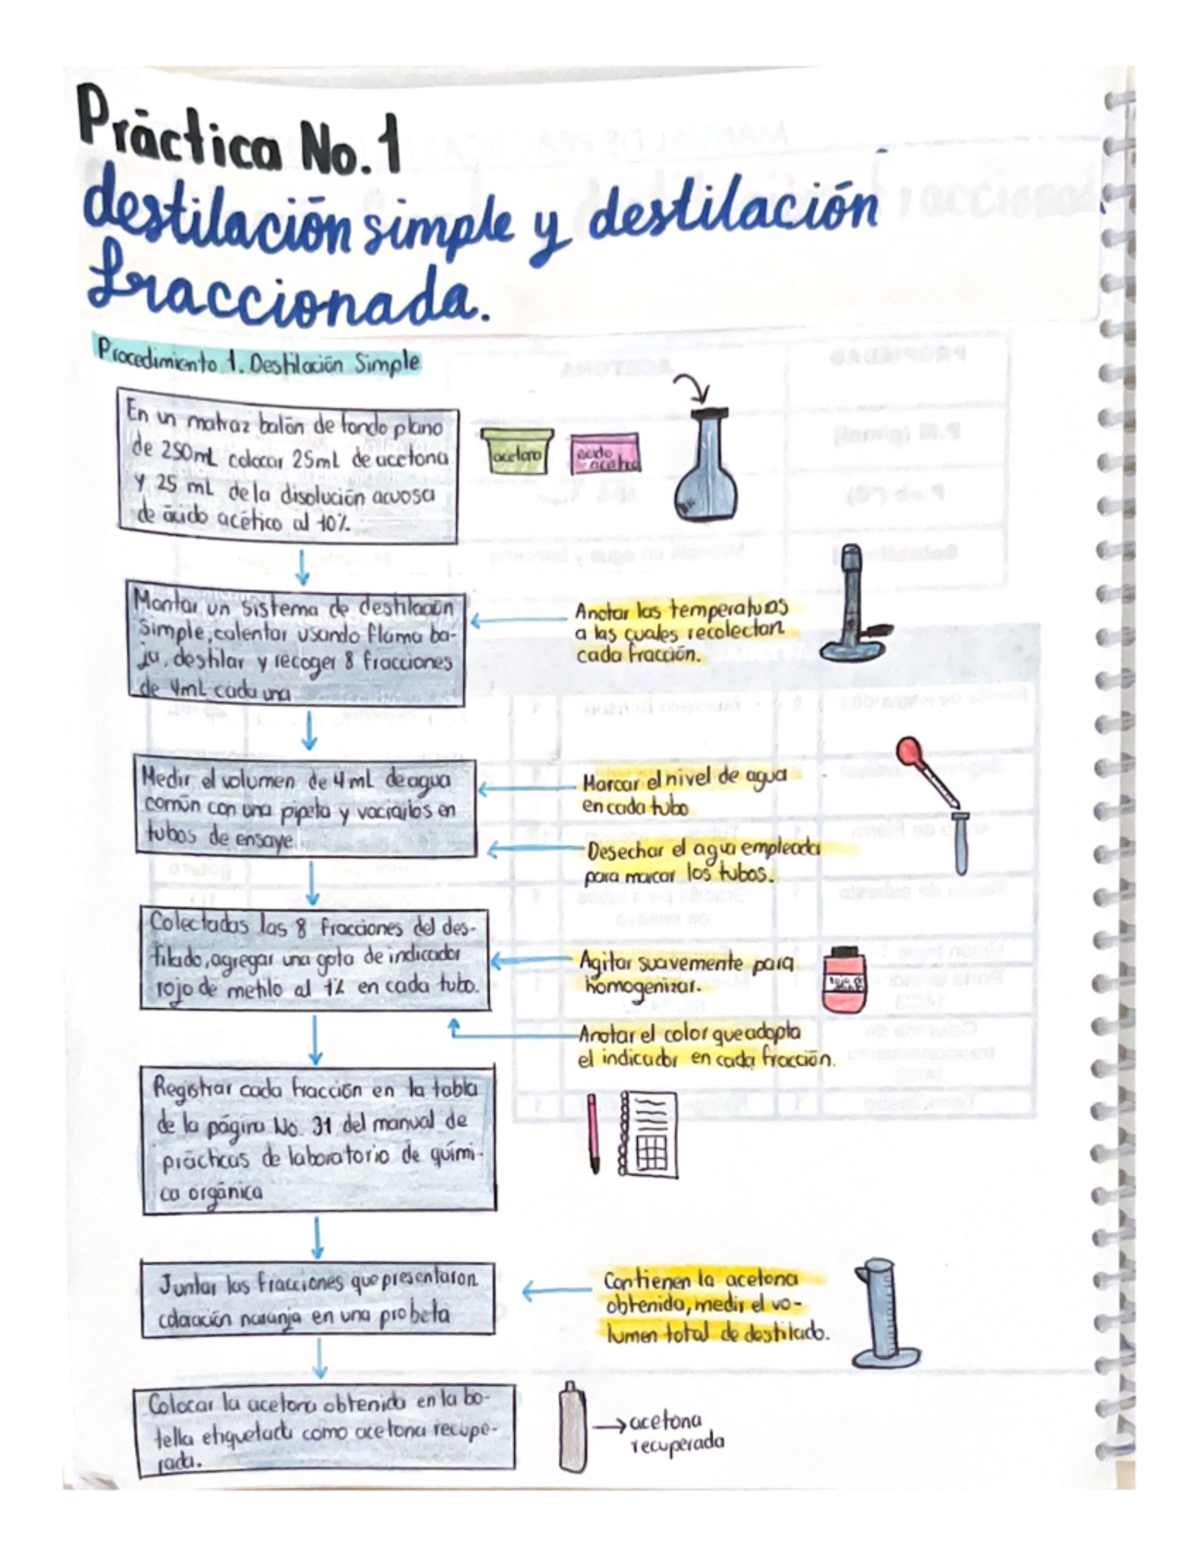 Práctica No. 1
destilación simple y destilación
fraccionada.
Procedimiento 1. Destilación Simple
En un matraz balón de fondo plano
de 250mL colocar 25mL de acetona
y 25 mL de la disolución acuosa
de ácido acético al 10%
acetona
ácido
acético
Montar un sistema de destilación
simple, calentar usando flama ba-
ja, destilar y recoger 8 fracciones
de 4mL cada una
Anotar las temperaturas
a las cuales recolectan
cada fracción.
Medir el volumen de 4mL de agua
común con una pipeta y vaciarlos en
tubos de ensaye
Marcar el nivel de agua
en cada tubo
Desechar el agua empleada
para marcar los tubos.
Colectadas las 8 fracciones del des-
tilado, agregar una gota de indicador
rojo de metilo al 1% en cada tubo.
Agitar suavemente para
homogenizar.
Anotar el color que adopta
el indicador en cada fracción.
Registrar cada fracción en la tabla
de la página No. 31 del manual de
prácticas de laboratorio de quími-
ca orgánica
Juntar las fracciones que presentaron
coloración naranja en una probeta
Contienen la acetona
obtenida, medir el vo-
lumen total de destilado.
Colocar la acetona obtenida en la bo-
tella etiquetada como acetona recupe-
rada.
→ acetona
recuperada